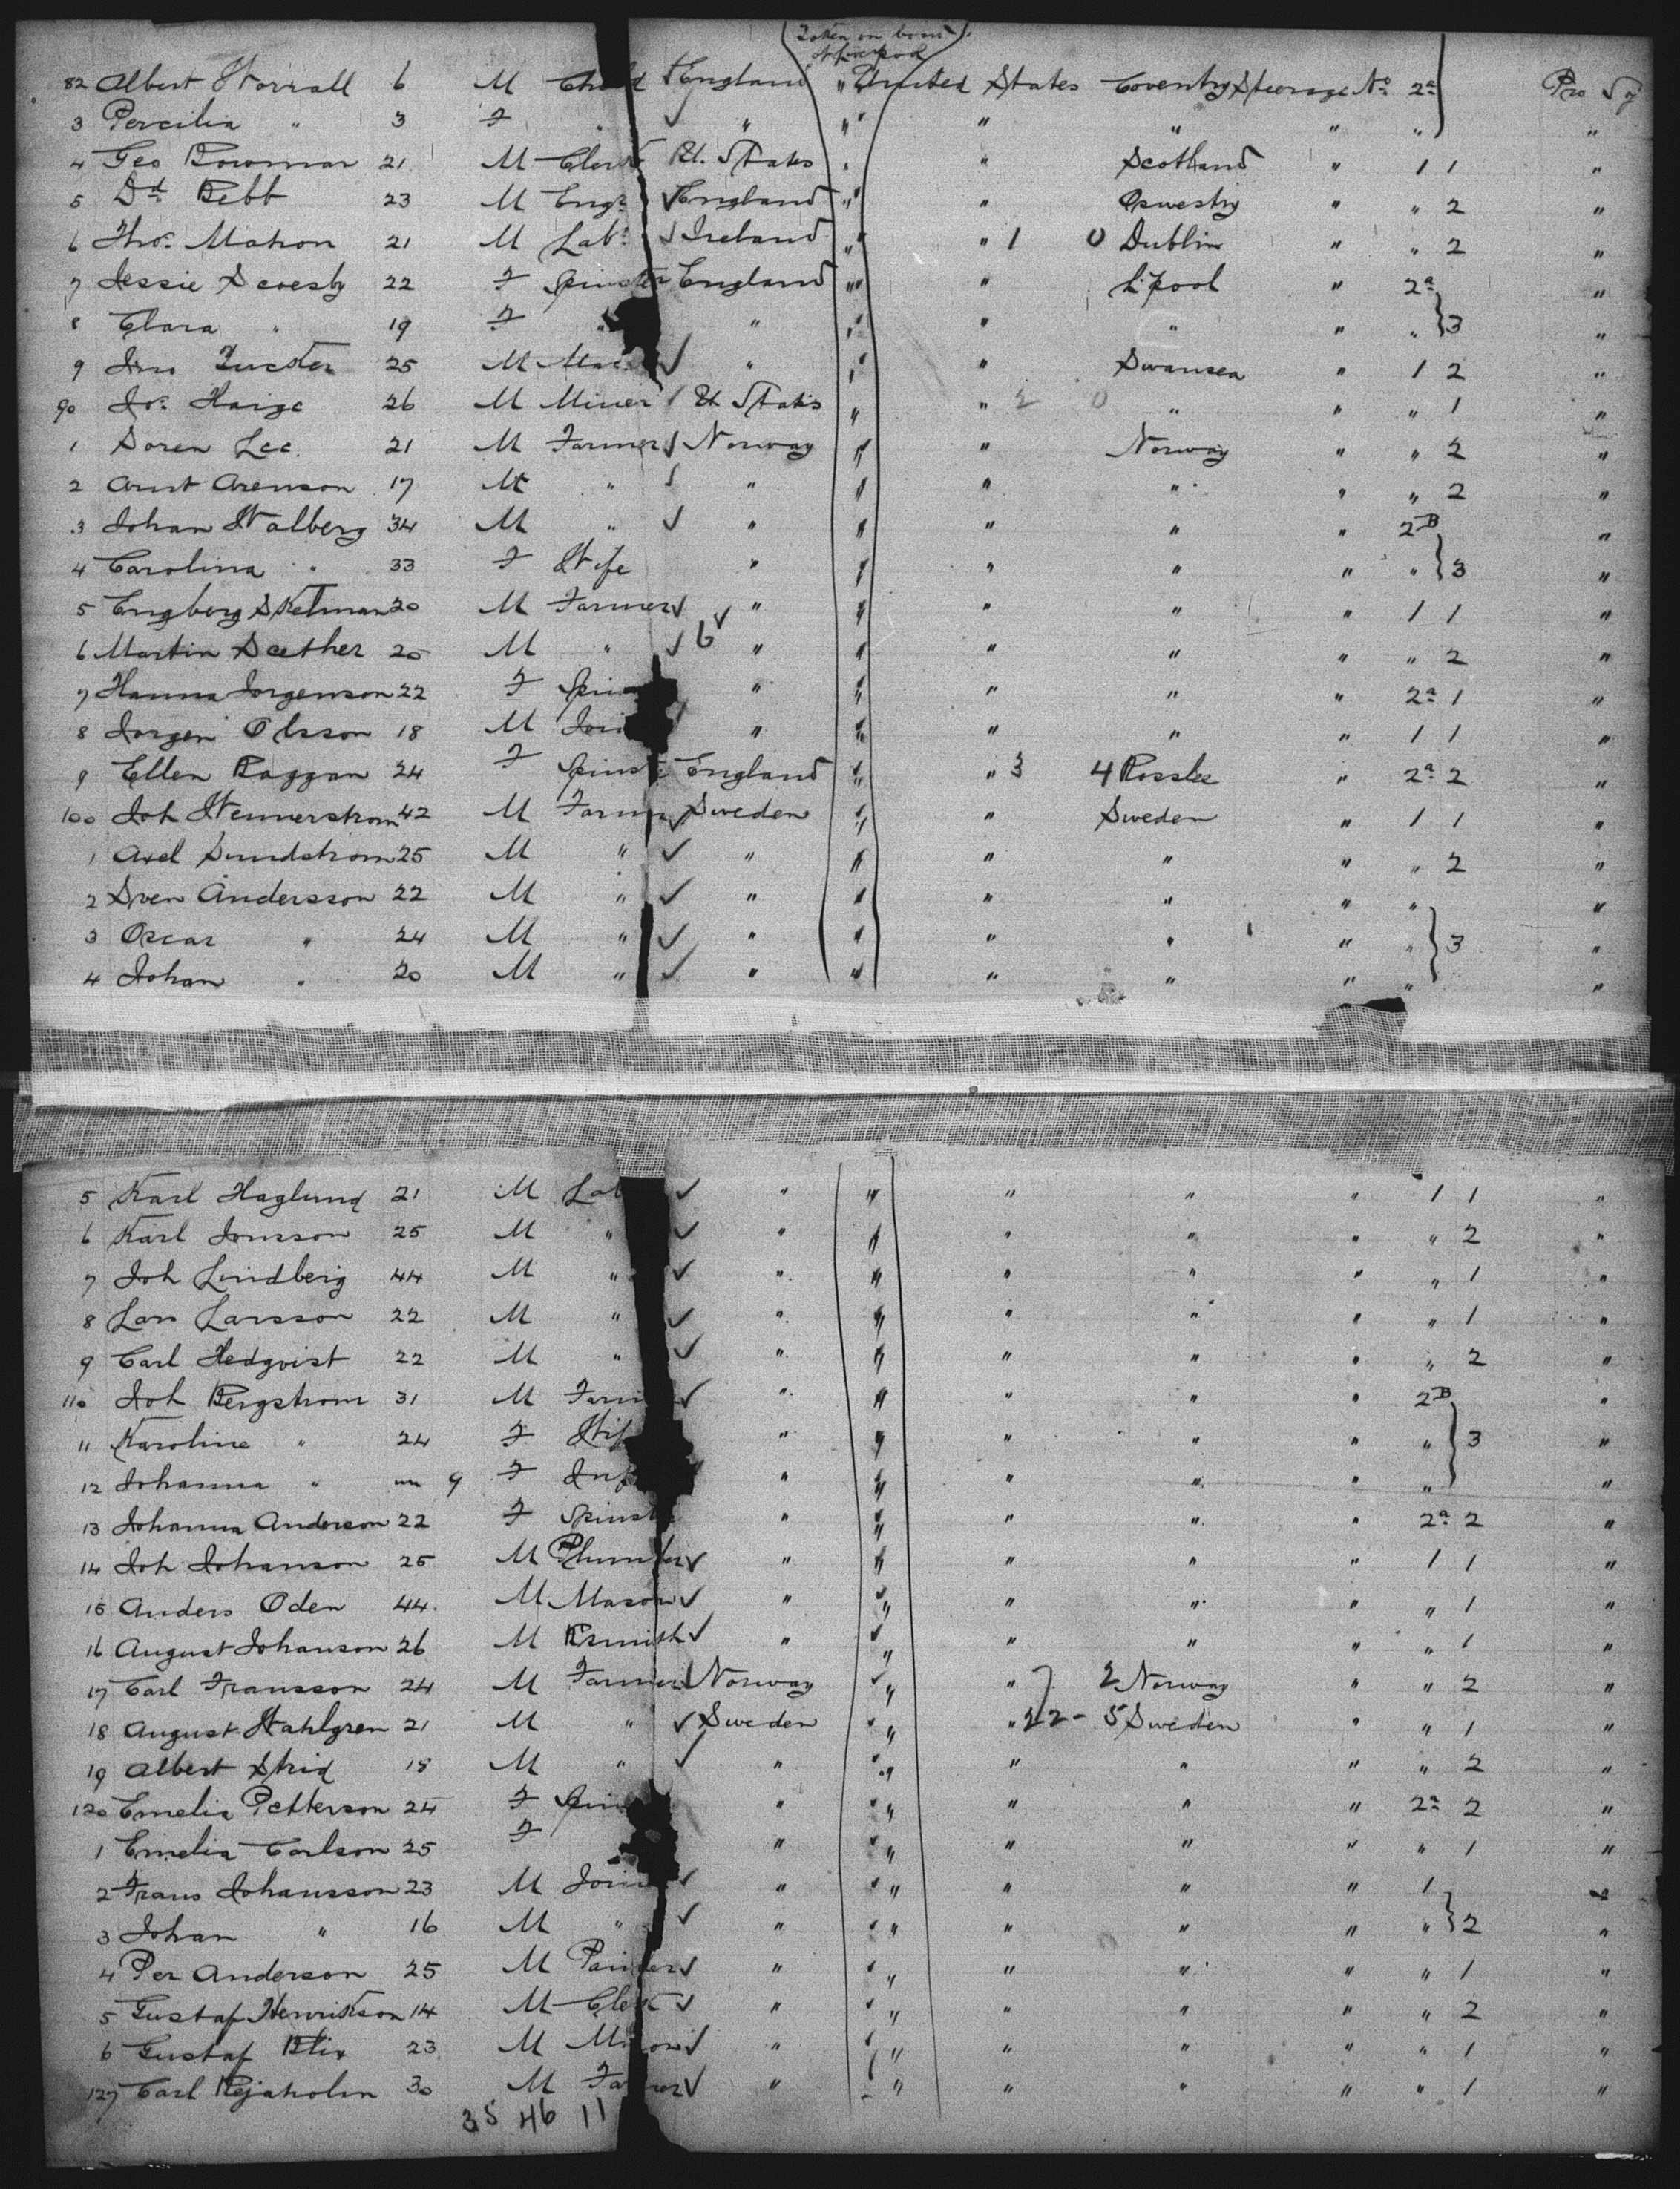 Taken on board
at Liverpool
82 Albert Worrall 6 M Child England " United States Coventry Steerage No 2a Pro Sy
3 Percilia " 3 F " ✓ " " " " " " "
4 Geo Bowman 21 M Clerk U. States " " Scotland " 1 1 "
5 Dd Bebb 23 M Engr ✓ England " " Oswestry " " 2 "
6 Thos Mahon 21 M Labr ✓ Ireland " " 1 0 Dublin " " 2 "
7 Jessie Scoresby 22 F Spinster England " " L'pool " 2a "
8 Clara " 19 F " " " " " " " } 3 "
9 Jno 25 M ✓ " " " Swansea " 1 2 "
90 Jos Haige 26 M Miner U States " " 2 0 " " " 1 "
1 Soren Lee 21 M Farmer ✓ Norway " " Norway " " 2 "
2 Arnt Arenson 17 M " ✓ " " " " " " 2 "
3 Johan Walberg 34 M " ✓ " " " " " 2B "
4 Carolina " 33 F Wife " " " " " " } 3 "
5 Engberg Sketman 20 M Farmer ✓ " " " " " 1 1 "
6 Martin Saether 20 M " ✓ 6 ✓ " " " " " " 2 "
7 Hanna Jorgenson 22 F Spin " " " " " 2a 1 "
8 Jorgen Olsson 18 M Join ✓ " " " " " 1 1 "
9 Ellen Raggan 24 F Spinst England " " 3 4 " 2a 2 "
100 Joh Wennerstrom 42 M Farmer ✓ Sweden " " Sweden " 1 1 "
1 Axel Sundstrom 25 M " ✓ " " " " " " 2 "
2 Sven Andersson 22 M " ✓ " " " " " " "
3 Oscar " 24 M " ✓ " " " " " " } 3 "
4 Johan " 20 M " ✓ " " " " " " "
5 Karl Haglund 21 M Lab ✓ " " " " " 1 1 "
6 Karl Jonsson 25 M " ✓ " " " " " " 2 "
7 Joh Lindberg 44 M " ✓ " " " " " " 1 "
8 Lars Larsson 22 M " ✓ " " " " " " 1 "
9 Carl Hedqvist 22 M " ✓ " " " " " " 2 "
110 Joh Bergstrom 31 M Farm ✓ " " " " " 2B "
11 Karoline " 24 F Wif " " " " " " } 3 "
12 Johanna " 9 F Inf " " " " " " "
13 Johanna Anderson 22 F Spinst " " " " " 2a 2 "
14 Joh Johanson 25 M Plumber ✓ " " " " " 1 1 "
15 Anders Oden 44 M Mason ✓ " " " " " " 1 "
16 August Johanson 26 M Bsmith ✓ " " " " " " 1 "
17 Carl Fransson 24 M Farmer ✓ Norway " " 7 2 Norway " " 2 "
18 August Wahlgren 21 M " ✓ Sweden " " 22 - 5 Sweden " " 1 "
19 Albert Strid 18 M " ✓ " " " " " " 2 "
120 Emelia Petterson 24 F Spin " " " " " 2a 2 "
1 Emelia Carlson 25 F " " " " " " 1 "
2 Frans Johansson 23 M Join ✓ " " " " " 1 "
3 Johan " 16 M " ✓ " " " " " " } 2 "
4 Per Anderson 25 M Painter ✓ " " " " " " 1 "
5 Gustaf Henrikson 14 M Clerk ✓ " " " " " " 2 "
6 Gustaf Blix 23 M Mason ✓ " " " " " " 1 "
127 Carl 30 M Farmer ✓ " " " " " " 1 "
35 46 11